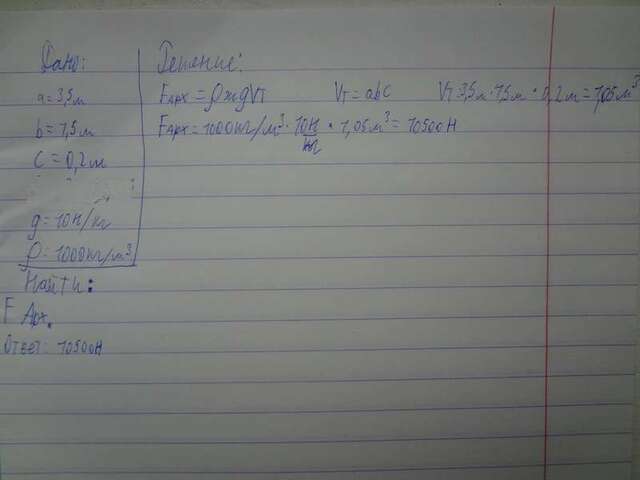 Дано:
a = 3,5 м
b = 1,5 м
c = 0,2 м
g = 10Н/кг
ρ = 1000кг/м³
Найти:
F Арх.
Ответ: 10500Н
Решение:
Fарх = ρжgVт Vт = abc Vт 3,5м · 1,5м · 0,2м = 1,05м³
Fарх = 1000кг/м³ · 10Н/кг · 1,05м³ = 10500Н